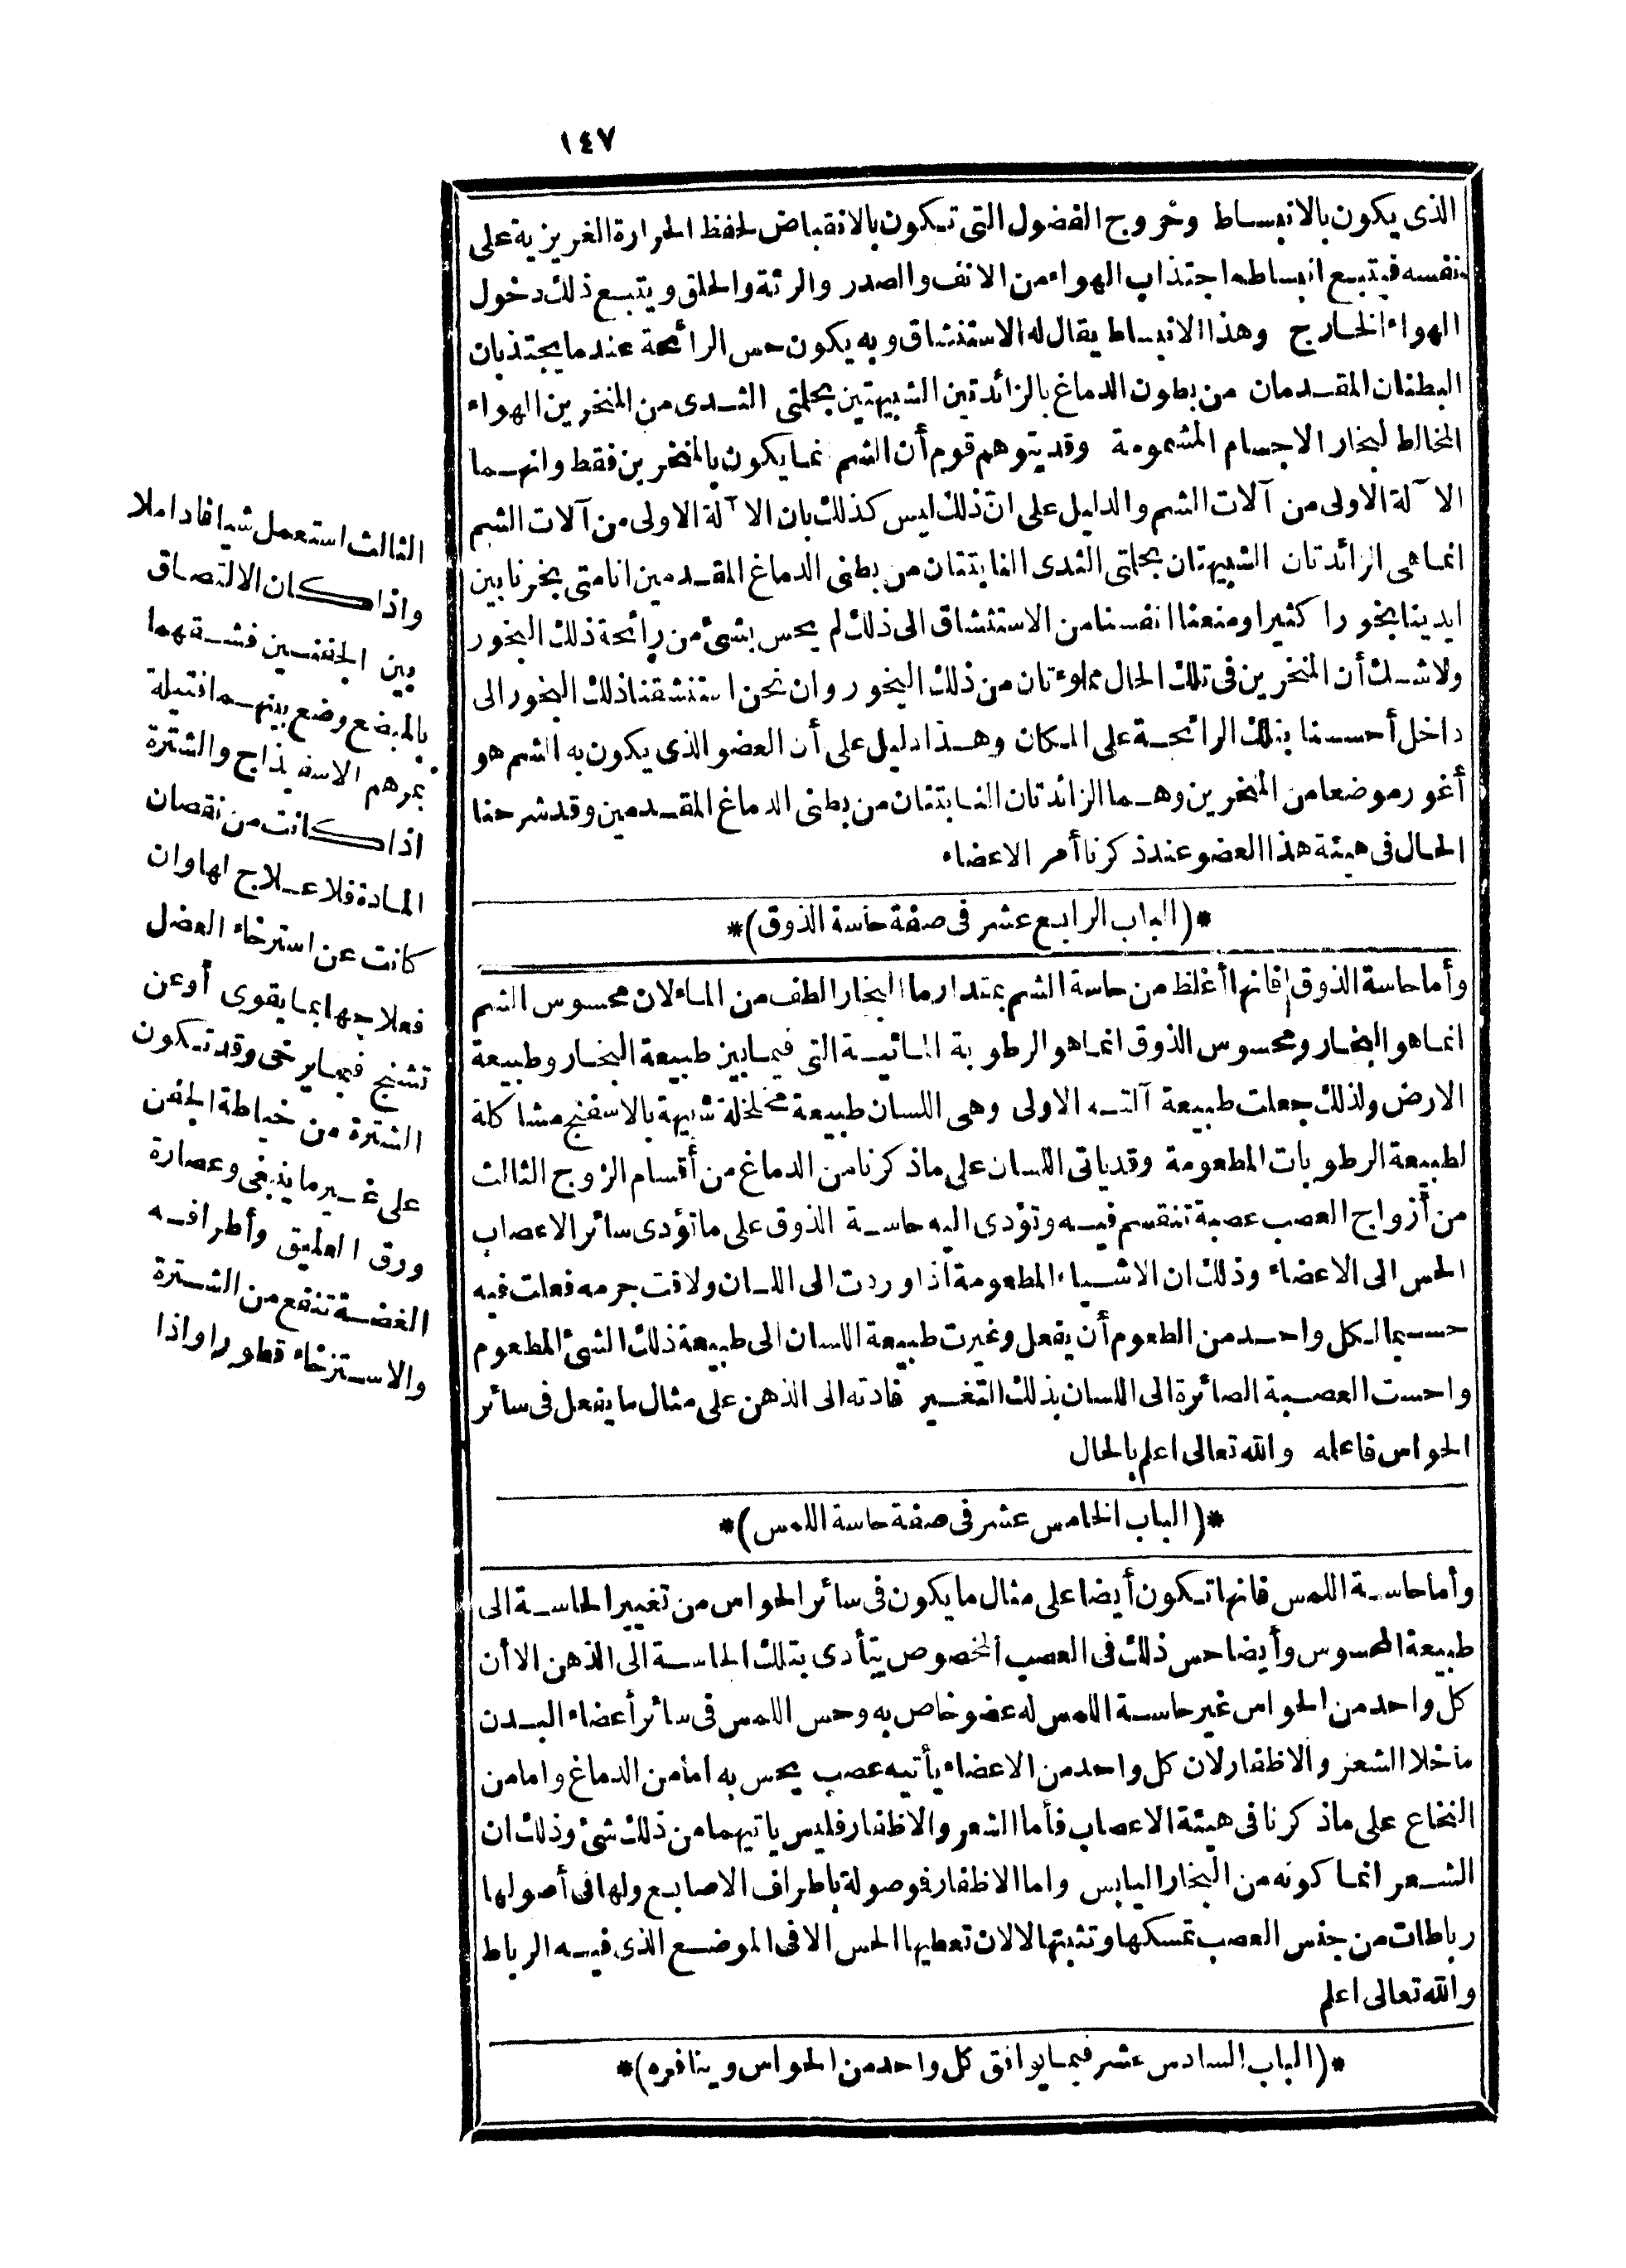 ١٤٧
الذى يكون بالانبساط وخروج الفضول التى تكون بالانقباض لحفظ الحرارة الغريزية على
نفسه فيتبع انبساطه اجتذاب الهواء من الانف والصدر والرئة والحلق ويتبع ذلك دخول
الهواء الخارج وهذا الانبساط يقال له الاستنشاق وبه يكون حس الرائحة عند ما يجتذبان
البطنان المقدمان من بطون الدماغ بالزائدتين الشبيهتين بحلمتى الثدى من المنخرين الهواء
المخالط لبخار الاجسام المشمومة وقد يتوهم قوم أن الشم انما يكون بالمنخرين فقط وانهما
الآلة الاولى من آلات الشم والدليل على ان ذلك ليس كذلك بان الآلة الاولى من آلات الشم
انما هى الزائدتان الشبيهتان بحلمتى الثدى النابتتان من بطنى الدماغ المقدمين انا متى بخرنا بين
ايدينا بخورا كثيرا ومنعنا انفسنا من الاستنشاق الى ذلك لم يحس بشئ من رائحة ذلك البخور
ولا شك أن المنخرين فى تلك الحال مملوءتان من ذلك البخور وان نحن استنشقنا ذلك البخور الى
داخل أحسسنا بتلك الرائحة على المكان وهذا دليل على أن العضو الذى يكون به الشم هو
أغور موضعا من المنخرين وهما الزائدتان النابتتان من بطنى الدماغ المقدمين وقد شرحنا
الحال فى هيئة هذا العضو عند ذكرنا أمر الاعضاء
*(الباب الرابع عشر فى صفة حاسة الذوق)*
وأما حاسة الذوق فانها أغلظ من حاسة الشم بمقدار ما البخار الطف من الماء لان محسوس الشم
انما هو البخار ومحسوس الذوق انما هو الرطوبة المائية التى فيما بين طبيعة البخار وطبيعة
الارض ولذلك جعلت طبيعة آلته الاولى وهى اللسان طبيعة متخلخلة شبيهة بالاسفنج مشاكلة
لطبيعة الرطوبات المطعومة وقد ياتى اللسان على ماذكرنا من الدماغ من أقسام الزوج الثالث
من أزواج العصب عصبة تنقسم فيه وتؤدى اليه حاسة الذوق على ما تؤدى سائر الاعصاب
الحس الى الاعضاء وذلك ان الاشياء المطعومة اذا وردت الى اللسان ولاقت جرمه فعلت فيه
حسبما لكل واحد من الطعوم أن يفعل وغيرت طبيعة اللسان الى طبيعة ذلك الشئ المطعوم
واحست العصبة الصائرة الى اللسان بذلك التغيير فادته الى الذهن على مثال ما يفعل فى سائر
الحواس فاعلمه والله تعالى اعلم بالحال
*(الباب الخامس عشر فى صفة حاسة اللمس)*
وأما حاسة اللمس فانها تكون أيضا على مثال ما يكون فى سائر الحواس من تغيير الحاسة الى
طبيعة المحسوس وأيضا حس ذلك فى العصب المخصوص يتأدى بتلك الحاسة الى الذهن الا أن
كل واحد من الحواس غير حاسة اللمس له عضو خاص به وحس اللمس فى سائر أعضاء البدن
ما خلا الشعر والاظفار لان كل واحد من الاعضاء يأتيه عصب يحس به اما من الدماغ واما من
النخاع على ماذكرنا فى هيئة الاعصاب فأما الشعر والاظفار فليس ياتيهما من ذلك شئ وذلك ان
الشعر انما كونه من البخار اليابس واما الاظفار فموصولة باطراف الاصابع ولها فى أصولها
رباطات من جنس العصب تمسكها وتثبتها لا لان تعطيها الحس الا فى الموضع الذى فيه الرباط
والله تعالى اعلم
*(الباب السادس عشر فيما يوافق كل واحد من الحواس وينافره)*
الثالث استعمل شيافا داملا
واذا كان الالتصاق
بين الجفنين فشقهما
بالمبضع وضع بينهما فتيلة
بمرهم الاسفيذاج والشترة
اذا كانت من نقصان
المادة فلا علاج لها وان
كانت عن استرخاء العضل
فعلاجها بما يقوى أو عن
تشنج فبما يرخى وقد تكون
الشترة من خياطة الجفن
على غير ما ينبغى وعصارة
ورق العليق وأطرافه
الغضة تنفع من الشترة
والاسترخاء قطورا واذا